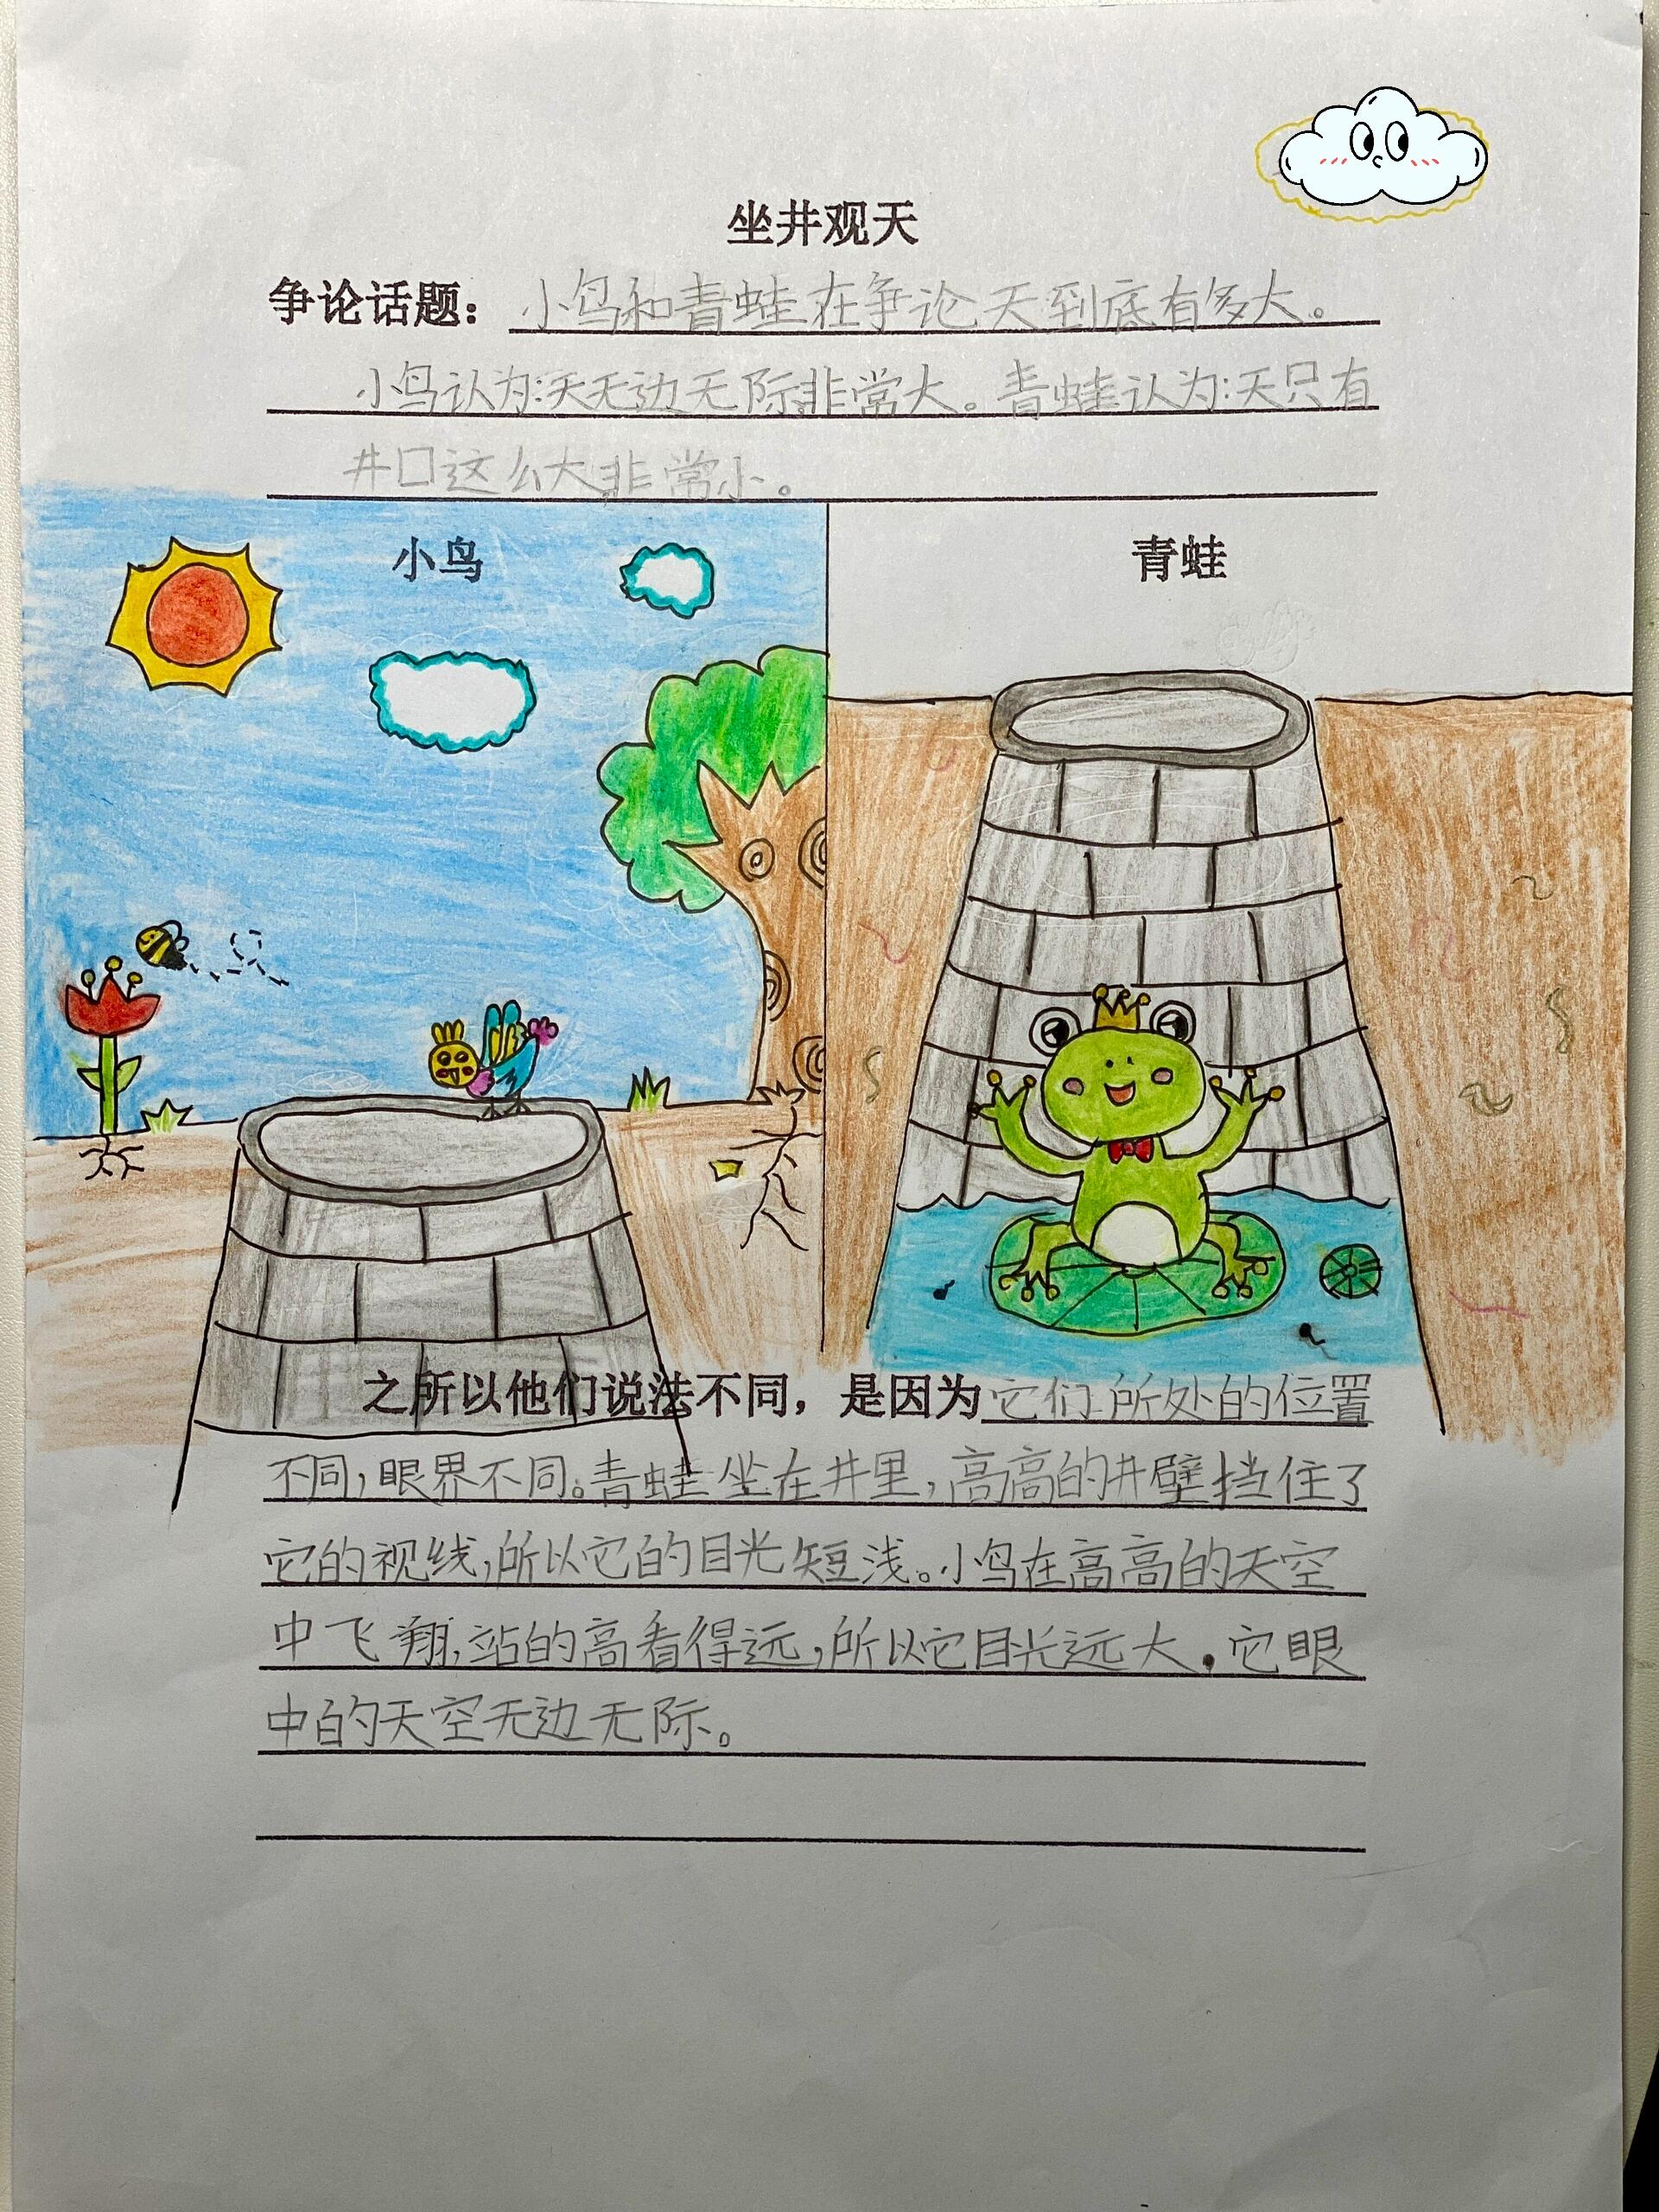 坐井观天
争论话题：小鸟和青蛙在争论天到底有多大。
小鸟认为:天无边无际,非常大。青蛙认为:天只有
井口这么大,非常小。
小鸟
青蛙
之所以他们说法不同，是因为它们所处的位置
不同,眼界不同。青蛙坐在井里,高高的井壁挡住了
它的视线,所以它的目光短浅。小鸟在高高的天空
中飞翔,站的高看得远,所以它目光远大.它眼
中的天空无边无际。